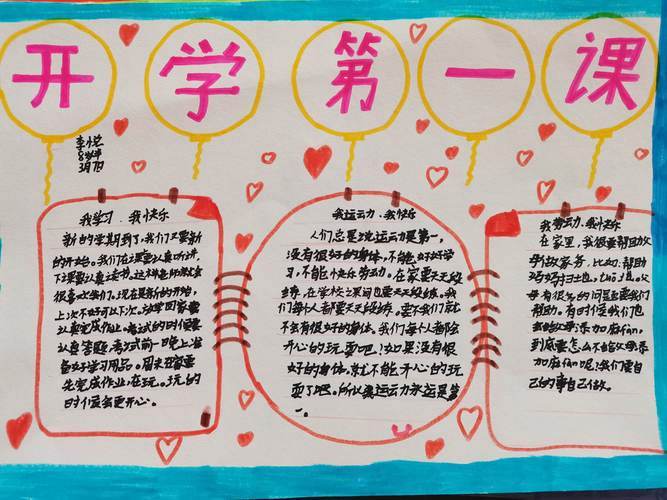 开学第一课
李悦
8岁半
3月7日
我学习、我快乐
新的学期到了，我们又要新
的开始。我们在课要认真听讲，
下课要认真读书，这样老师就会
很喜欢我们。现在是新的开始，
上次不好可以下次。放学回家要
认真完成作业。考试的时候要
认真答题，考试前一晚上准
备好学习用品。周末在家要
先完成作业，在玩。玩的
时候会更开心。
我运动、我快乐
人们总是说运动是第一，
没有很好的身体，不能好好学
习，不能快乐劳动。在家要天天锻
炼，在学校课间也要天天锻炼。我
们每个人都要天天锻炼，要不我们就
不会有很好的身体。我们每个人都会
开心的玩耍吧！如果没有很
好的身体，就不能开心的玩
耍了吧。所以我运动永远是第
一。
我劳动、我快乐
在家里，我很要帮助父
母做家务，比如，帮助
妈妈扫地，
母有很多的问题需要我们
帮助。有时候我们也
会给父母添加麻烦，
到底要怎么不给父母添
加麻烦呢？我们要自
己的事自己做。